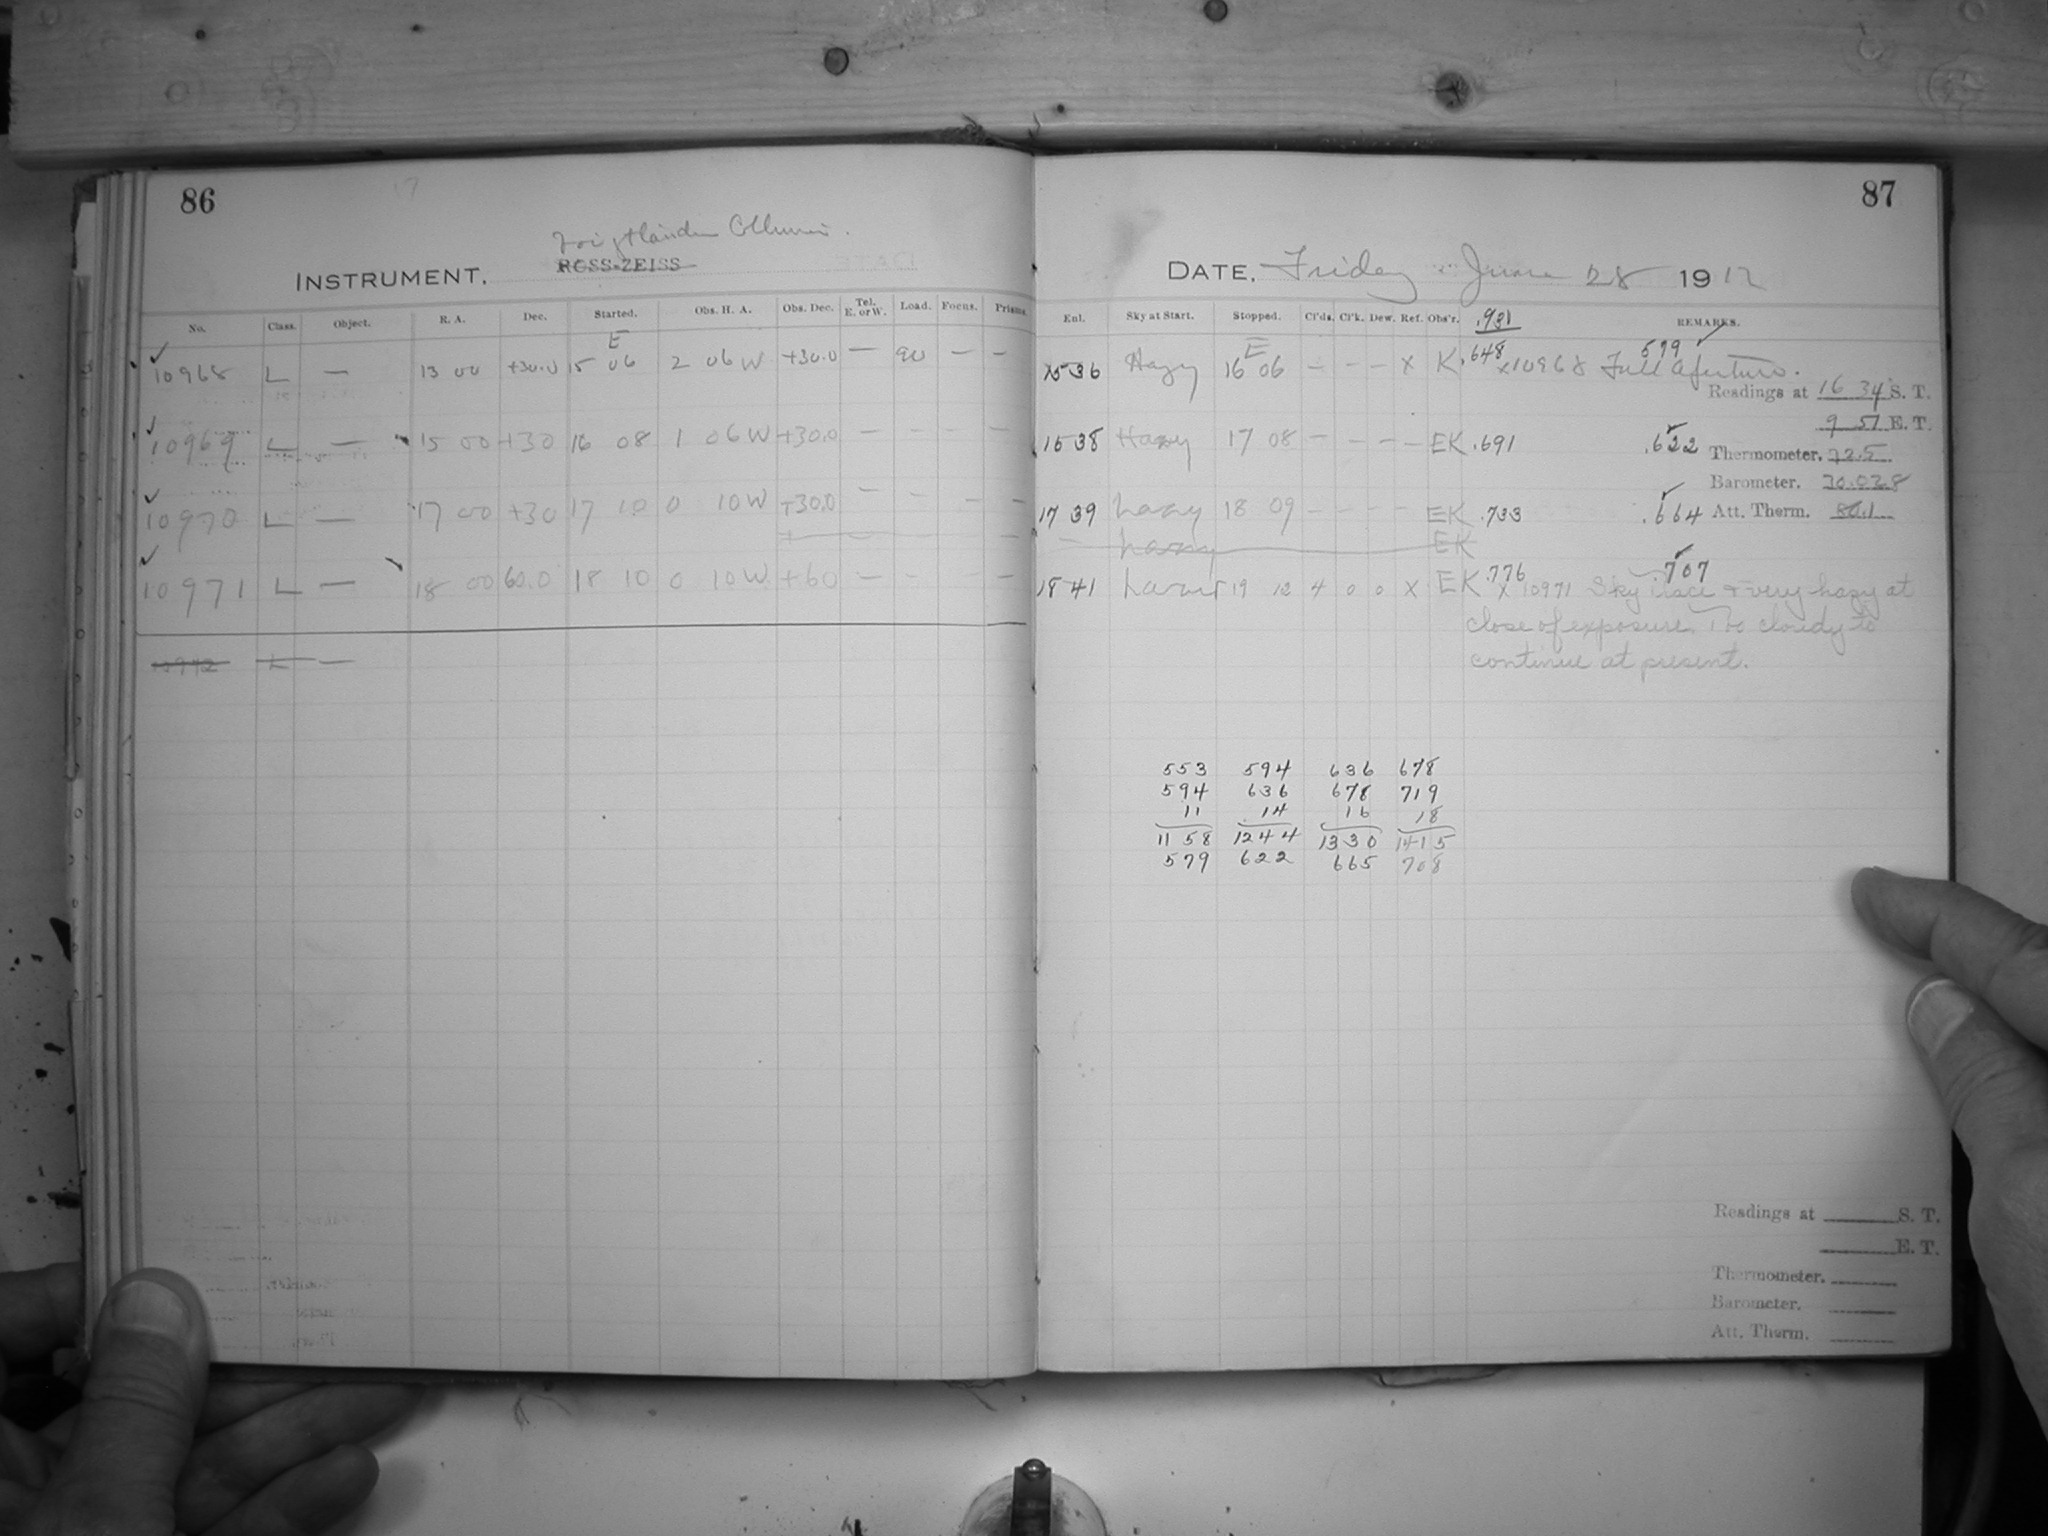 86
17
INSTRUMENT. ROSS-ZEISS
No. Class. Object. R. A. Dec. Started. Obs. H. A. Obs. Dec. Tel. E. or W. Load. Focus. Prisms.
E
10968 L — 13 00 +30.0 15 06 2 06 W +30.0 — 90 — —
10969 L — 15 00 +30 16 08 1 06 W +30.0 — — — —
10970 L — 17 00 +30 17 10 0 10 W +30.0 — — — —
10971 L — 18 00 60.0 18 10 0 10 W +60 — — —
10972 L —
87
DATE, Friday June 28 1912
Enl. Sky at Start. Stopped. Cl'ds. Cl'k. Dew. Ref. Obs'r. .931 REMARKS.
E
1536 Hazy 16 06 — — — x K .648 x10968 Full Aperture. 579
Readings at 16 34 S. T.
9 57 E. T.
1638 Hazy 17 08 — — — — EK .691 .622 Thermometer. 72.5
Barometer. 30.028
1739 hazy 18 09 — — — — EK .733 .664 Att. Therm. 80.1
— hazy EK
1841 19 12 4 0 0 x EK .776 x 10971 Sky trace & very hazy at .707
close of exposure. Too cloudy to
continue at present.
553 594 636 678
594 636 678 719
11 14 16 18
1158 1244 1330 1415
579 622 665 708
Readings at S. T.
E. T.
Thermometer.
Barometer.
Att. Therm.